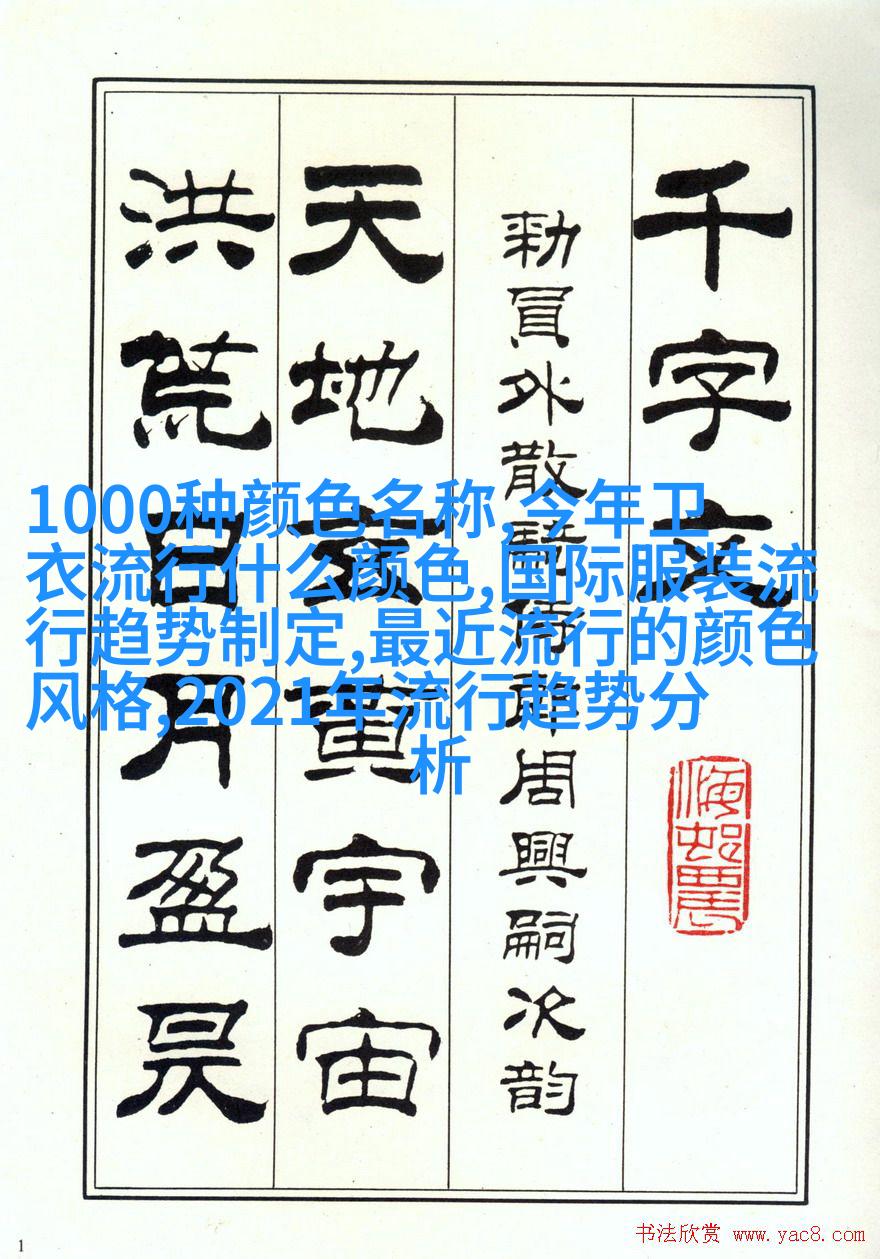 千字文
勑員外散騎侍郎周興嗣次韵
天地玄黃宇宙
洪荒日月盈昃
1000种颜色名称,今年卫
衣流行什么颜色,国际服装流
行趋势制定,最近流行的颜色
风格,2021年流行趋势分
析
1
书法欣赏 www.yac8.com